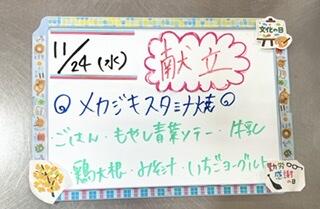 文化の日
11/24(水)
献立
メカジキスタミナ焼
ごはん・もやし青菜ソテー・牛乳
鶏大根・みそ汁・いちごヨーグルト
勤労感謝の日